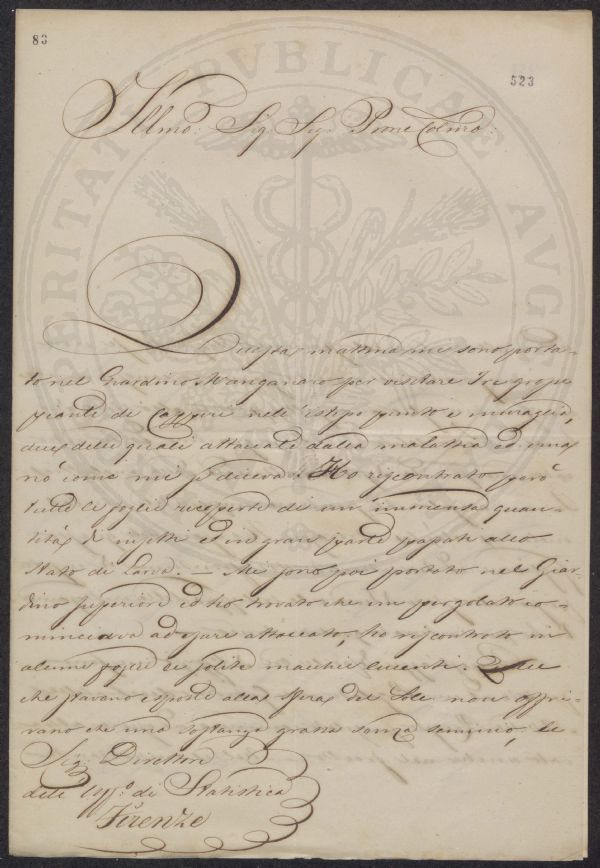 83
523
PERITATI PVBLICAE AVG
Illmo: Sig Sig: Prone Colmo:
Questa mattina mi sono porta-
to nel Giardino Manganaro per visitare Tre grosse
piante di Capperi nell' istesso punto e muraglia,
due delle quali attaccate dalla malattia ed una
nò come mi si diceva. Ho riscontrato però
tutte le foglie ricoperte di un immensa quan-
tità di insetti ed in gran parte passati allo
stato di Larva. — Mi sono poi portato nel Giar-
dino superiore ed ho trovato che un pergolato co-
minciava ad essere attaccato, ho riscontrato in
alcune foglie le solite macchie lucenti. Quelle
che stavano esposte alla sfera del Sole non offri-
vano che una sostanza grassa senza seminio, le
Sig: Direttore
dell' Uff:o di Statistica
Firenze